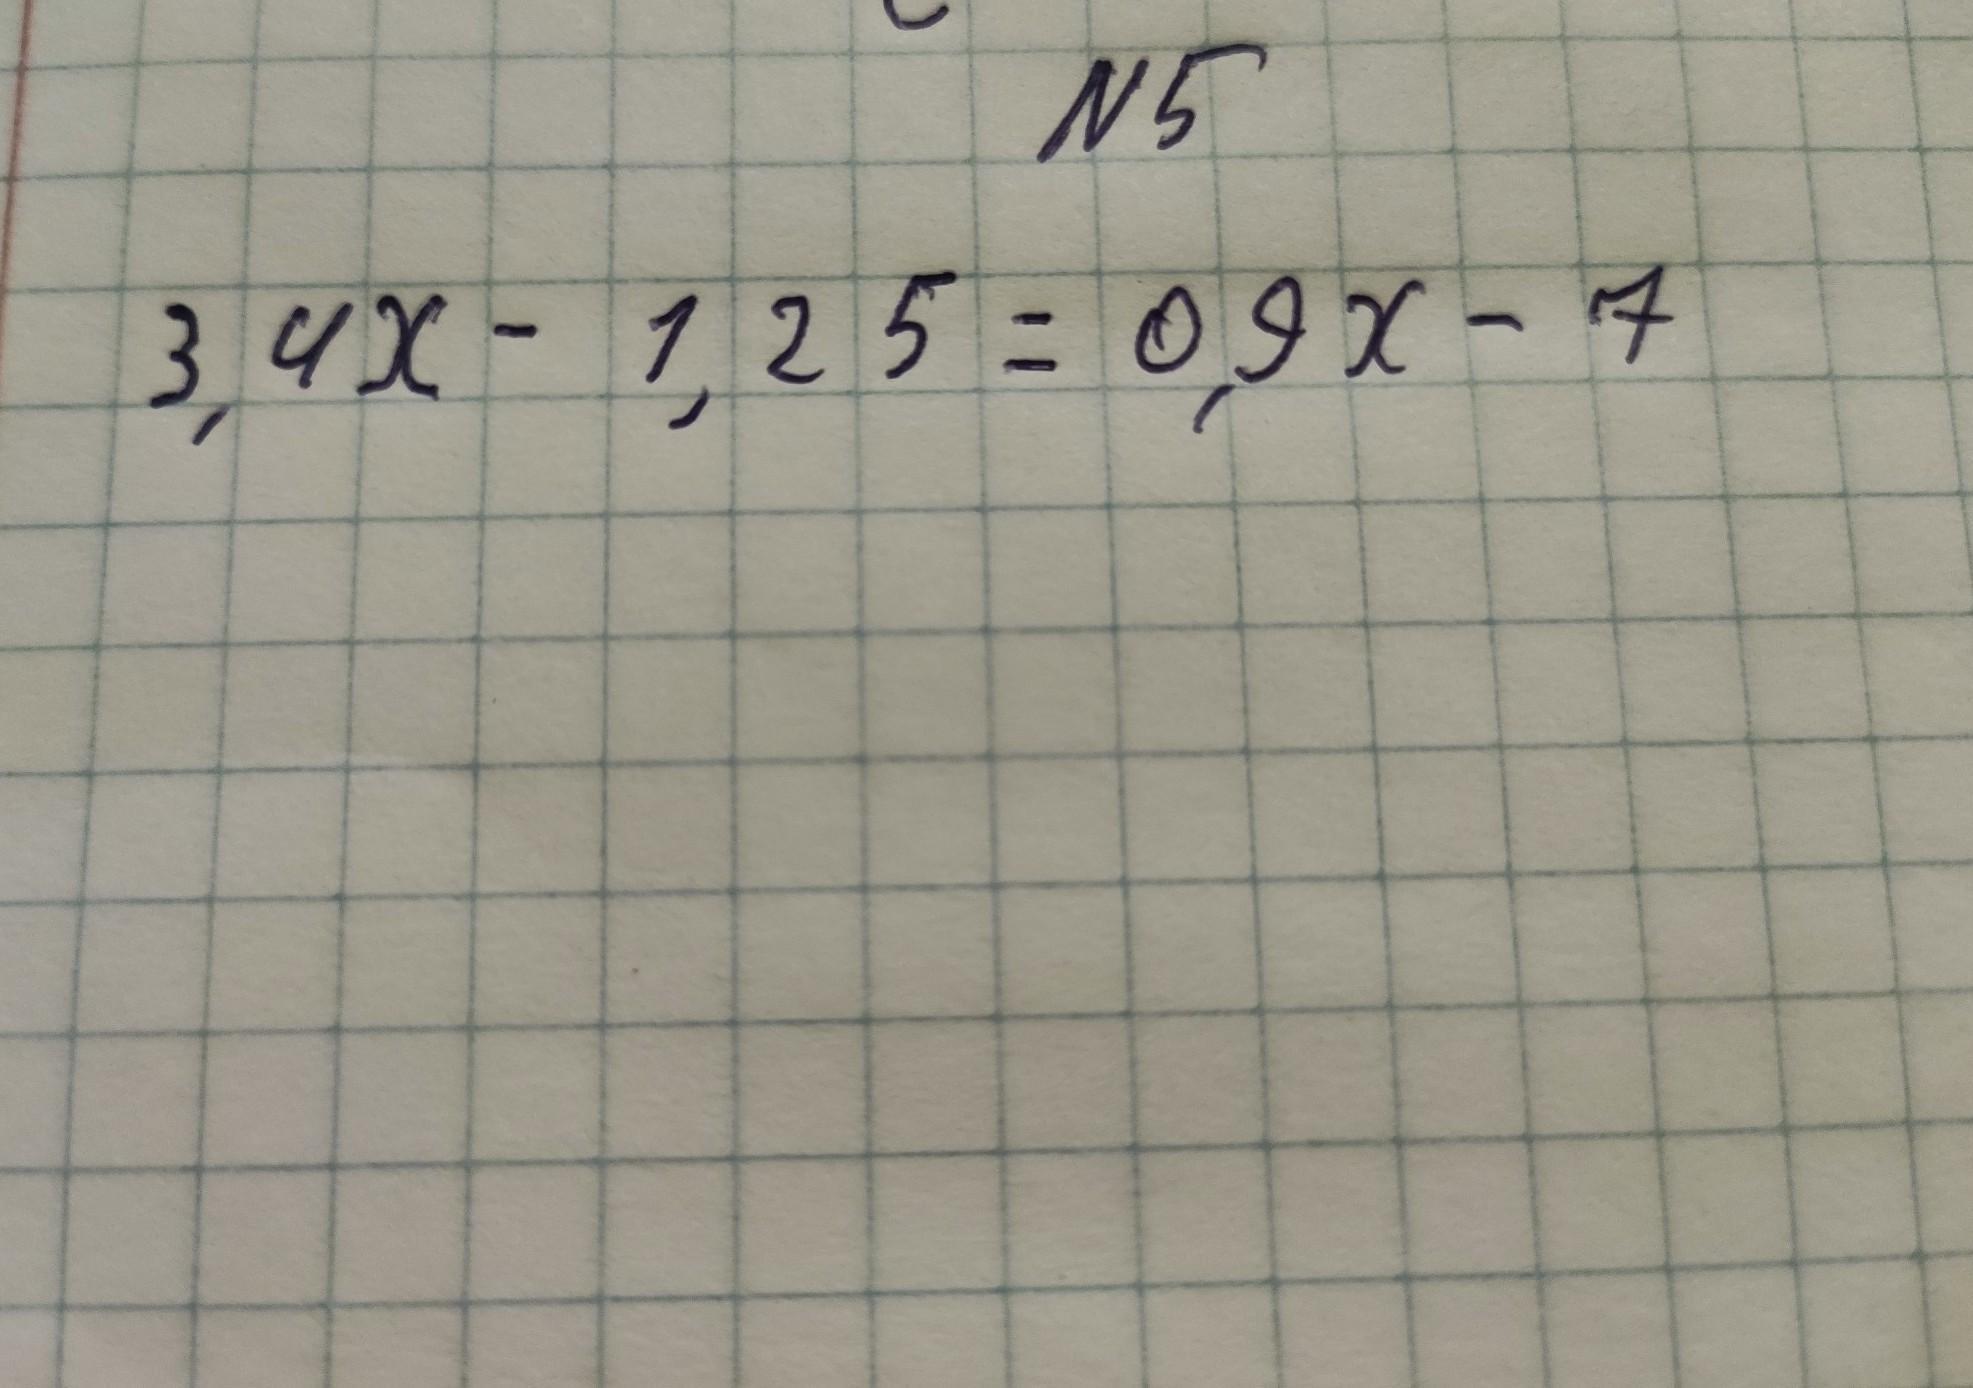 N5
3,4x - 1,25 = 0,9x - 7